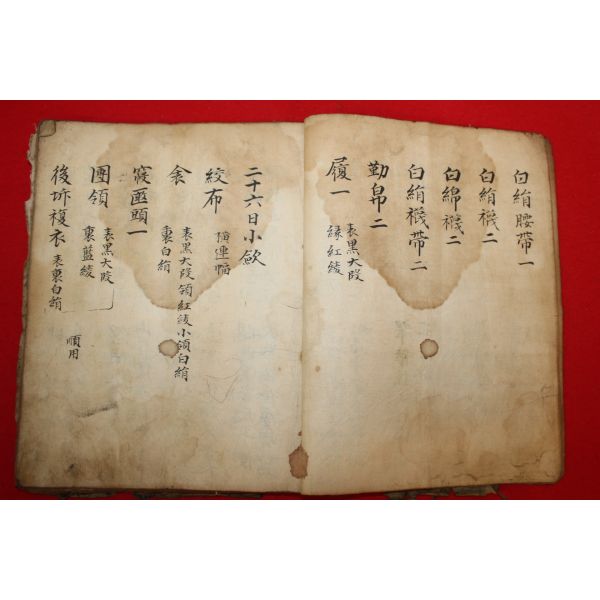 白絹腰帶一
白絹襪二
白綿襪二
白絹襪帶二
勤帛二
履一 表黑大段 縁紅綾
二十六日小歛
絞布 橫連幅
衾 表黑大段領紅綾小領白絹 裏白絹
匭頭一
團領 表黑大段 裏藍綾
後坼複衣 表裏白絹
順用